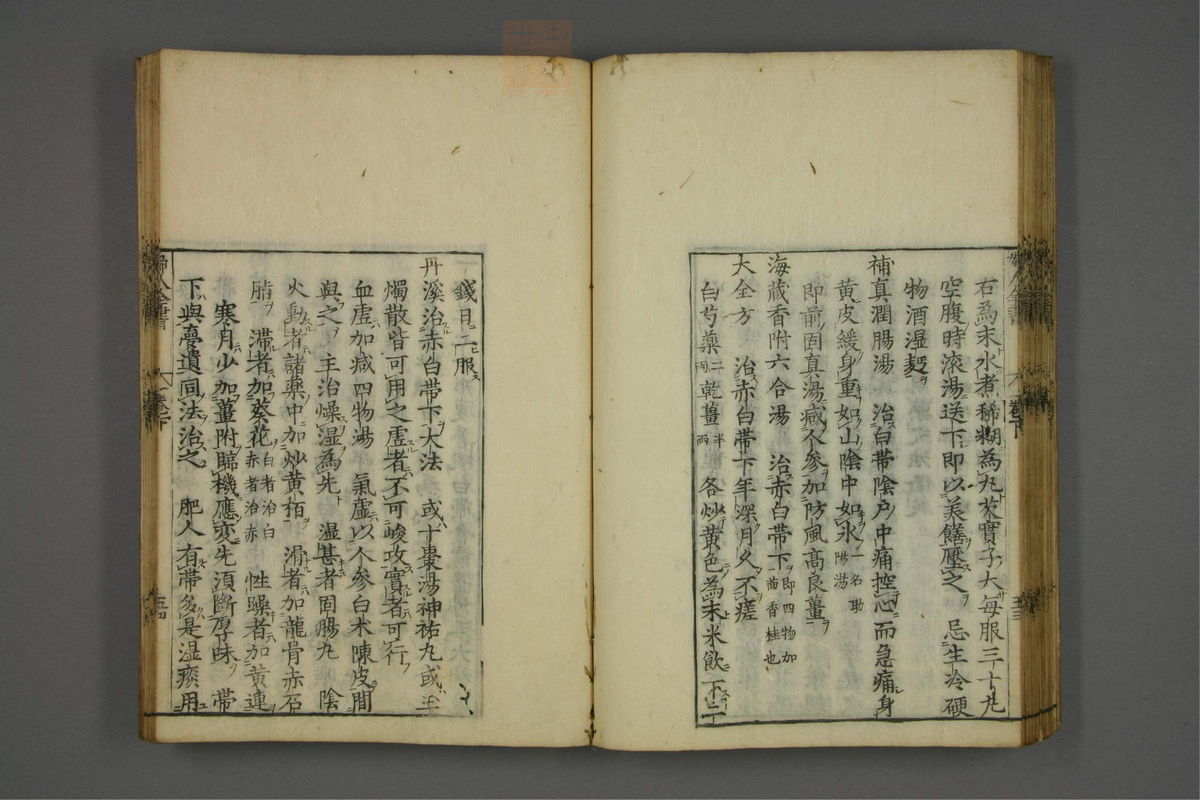 右為末水煮稀糊為丸芡實子大毎服三十丸
空腹時滚湯送下即以美饍壓之 忌生冷硬
物酒湿麪
補真潤腸湯 治白帯陰户中痛控心而急痛身
黄皮緩身重如山陰中如氷 一名助陽湯
即前固真湯减人參加防風髙良薑
海蔵香附六合湯 治赤白帯下 即四物加茴香桂也
大全方 治赤白帯下年深月久不瘥
白芍藥 二両 乾薑 半両 各炒黄色為末米飲下二
錢日二服
丹溪治赤白帯下大法 或十棗湯神祐丸或玉
燭散皆可用之虚者不可峻攻實者可行
血虚加减四物湯 氣虚以人参白朮陳皮間
與之 主治燥湿為先 湿甚者固腸丸 陰
火動者諸藥中加炒黄栢 滑者加龍骨赤石
脂 滞者加葵花 白者治白赤者治赤 性躁者加黄連
寒月少加薑附臨機應変先須斷厚味 帯
下與夢遺同法治之 肥人有帯多是湿痰用
婦人全書
巻下
五十三
五十四